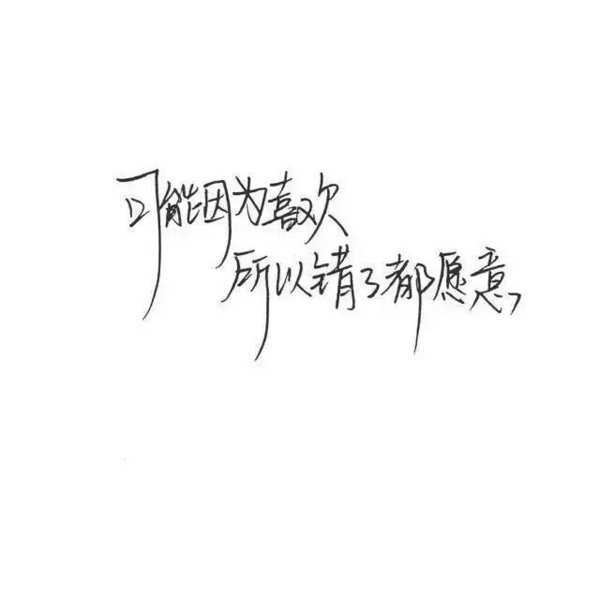 可能因为喜欢
所以错了都愿意，